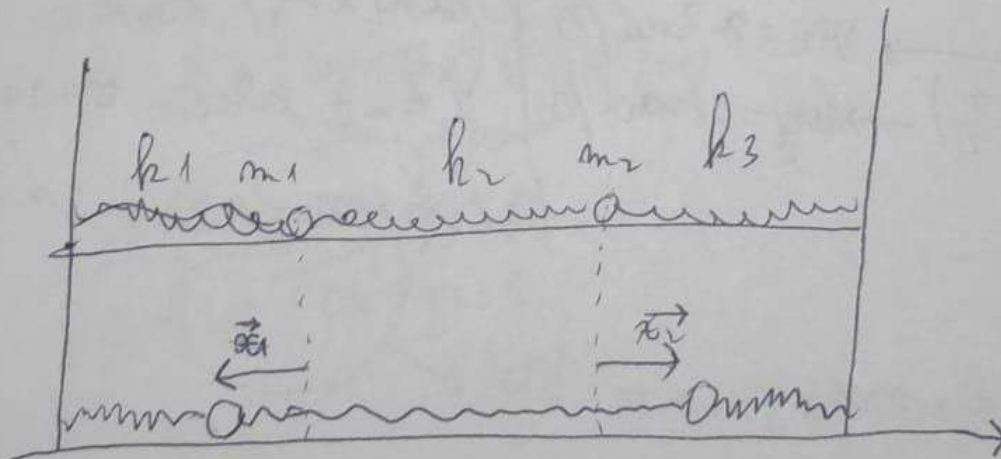 k1 m1 k2 m2 k3
x1 x2